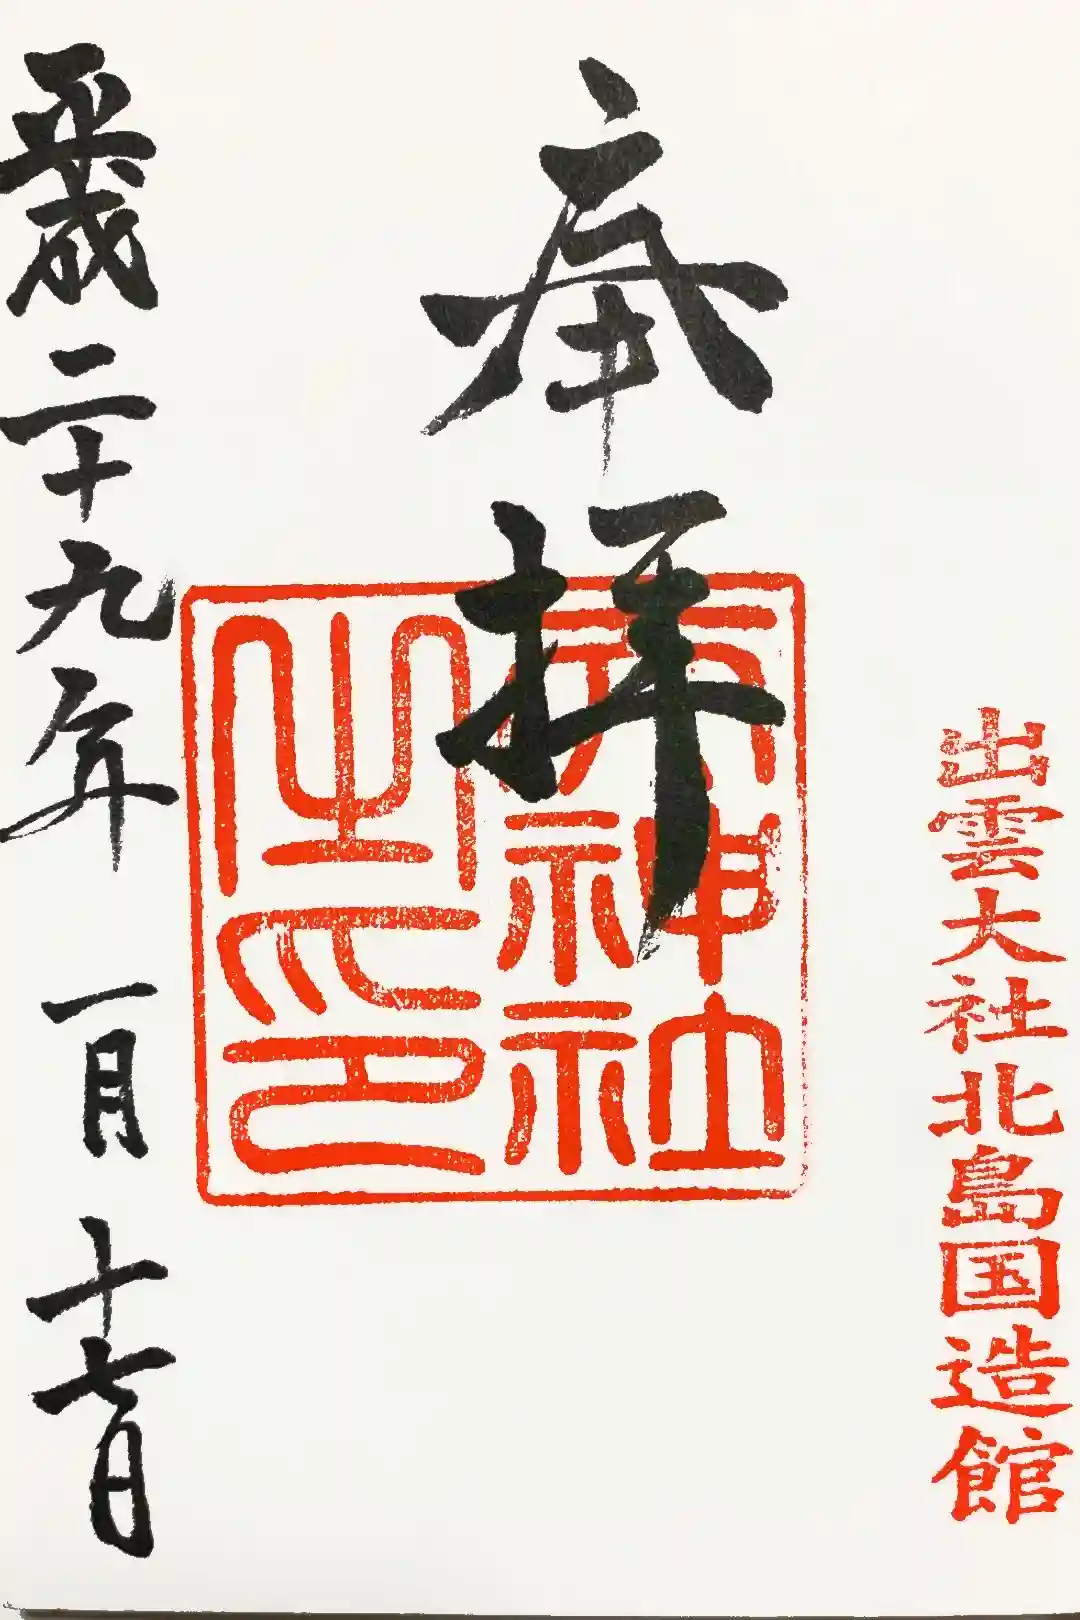 出雲大社北島国造館
奉拝
天神社
之印
平成二十九年 一月 十七日